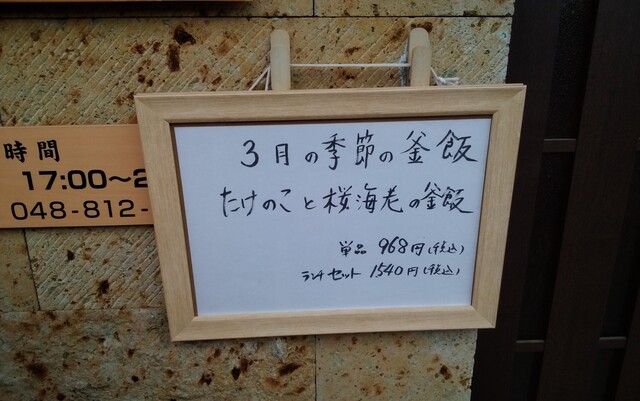 時間
17:00〜2
048-812-
3月の季節の釜飯
たけのこと桜海老の釜飯
単品 968円(税込)
ランチセット 1540円(税込)